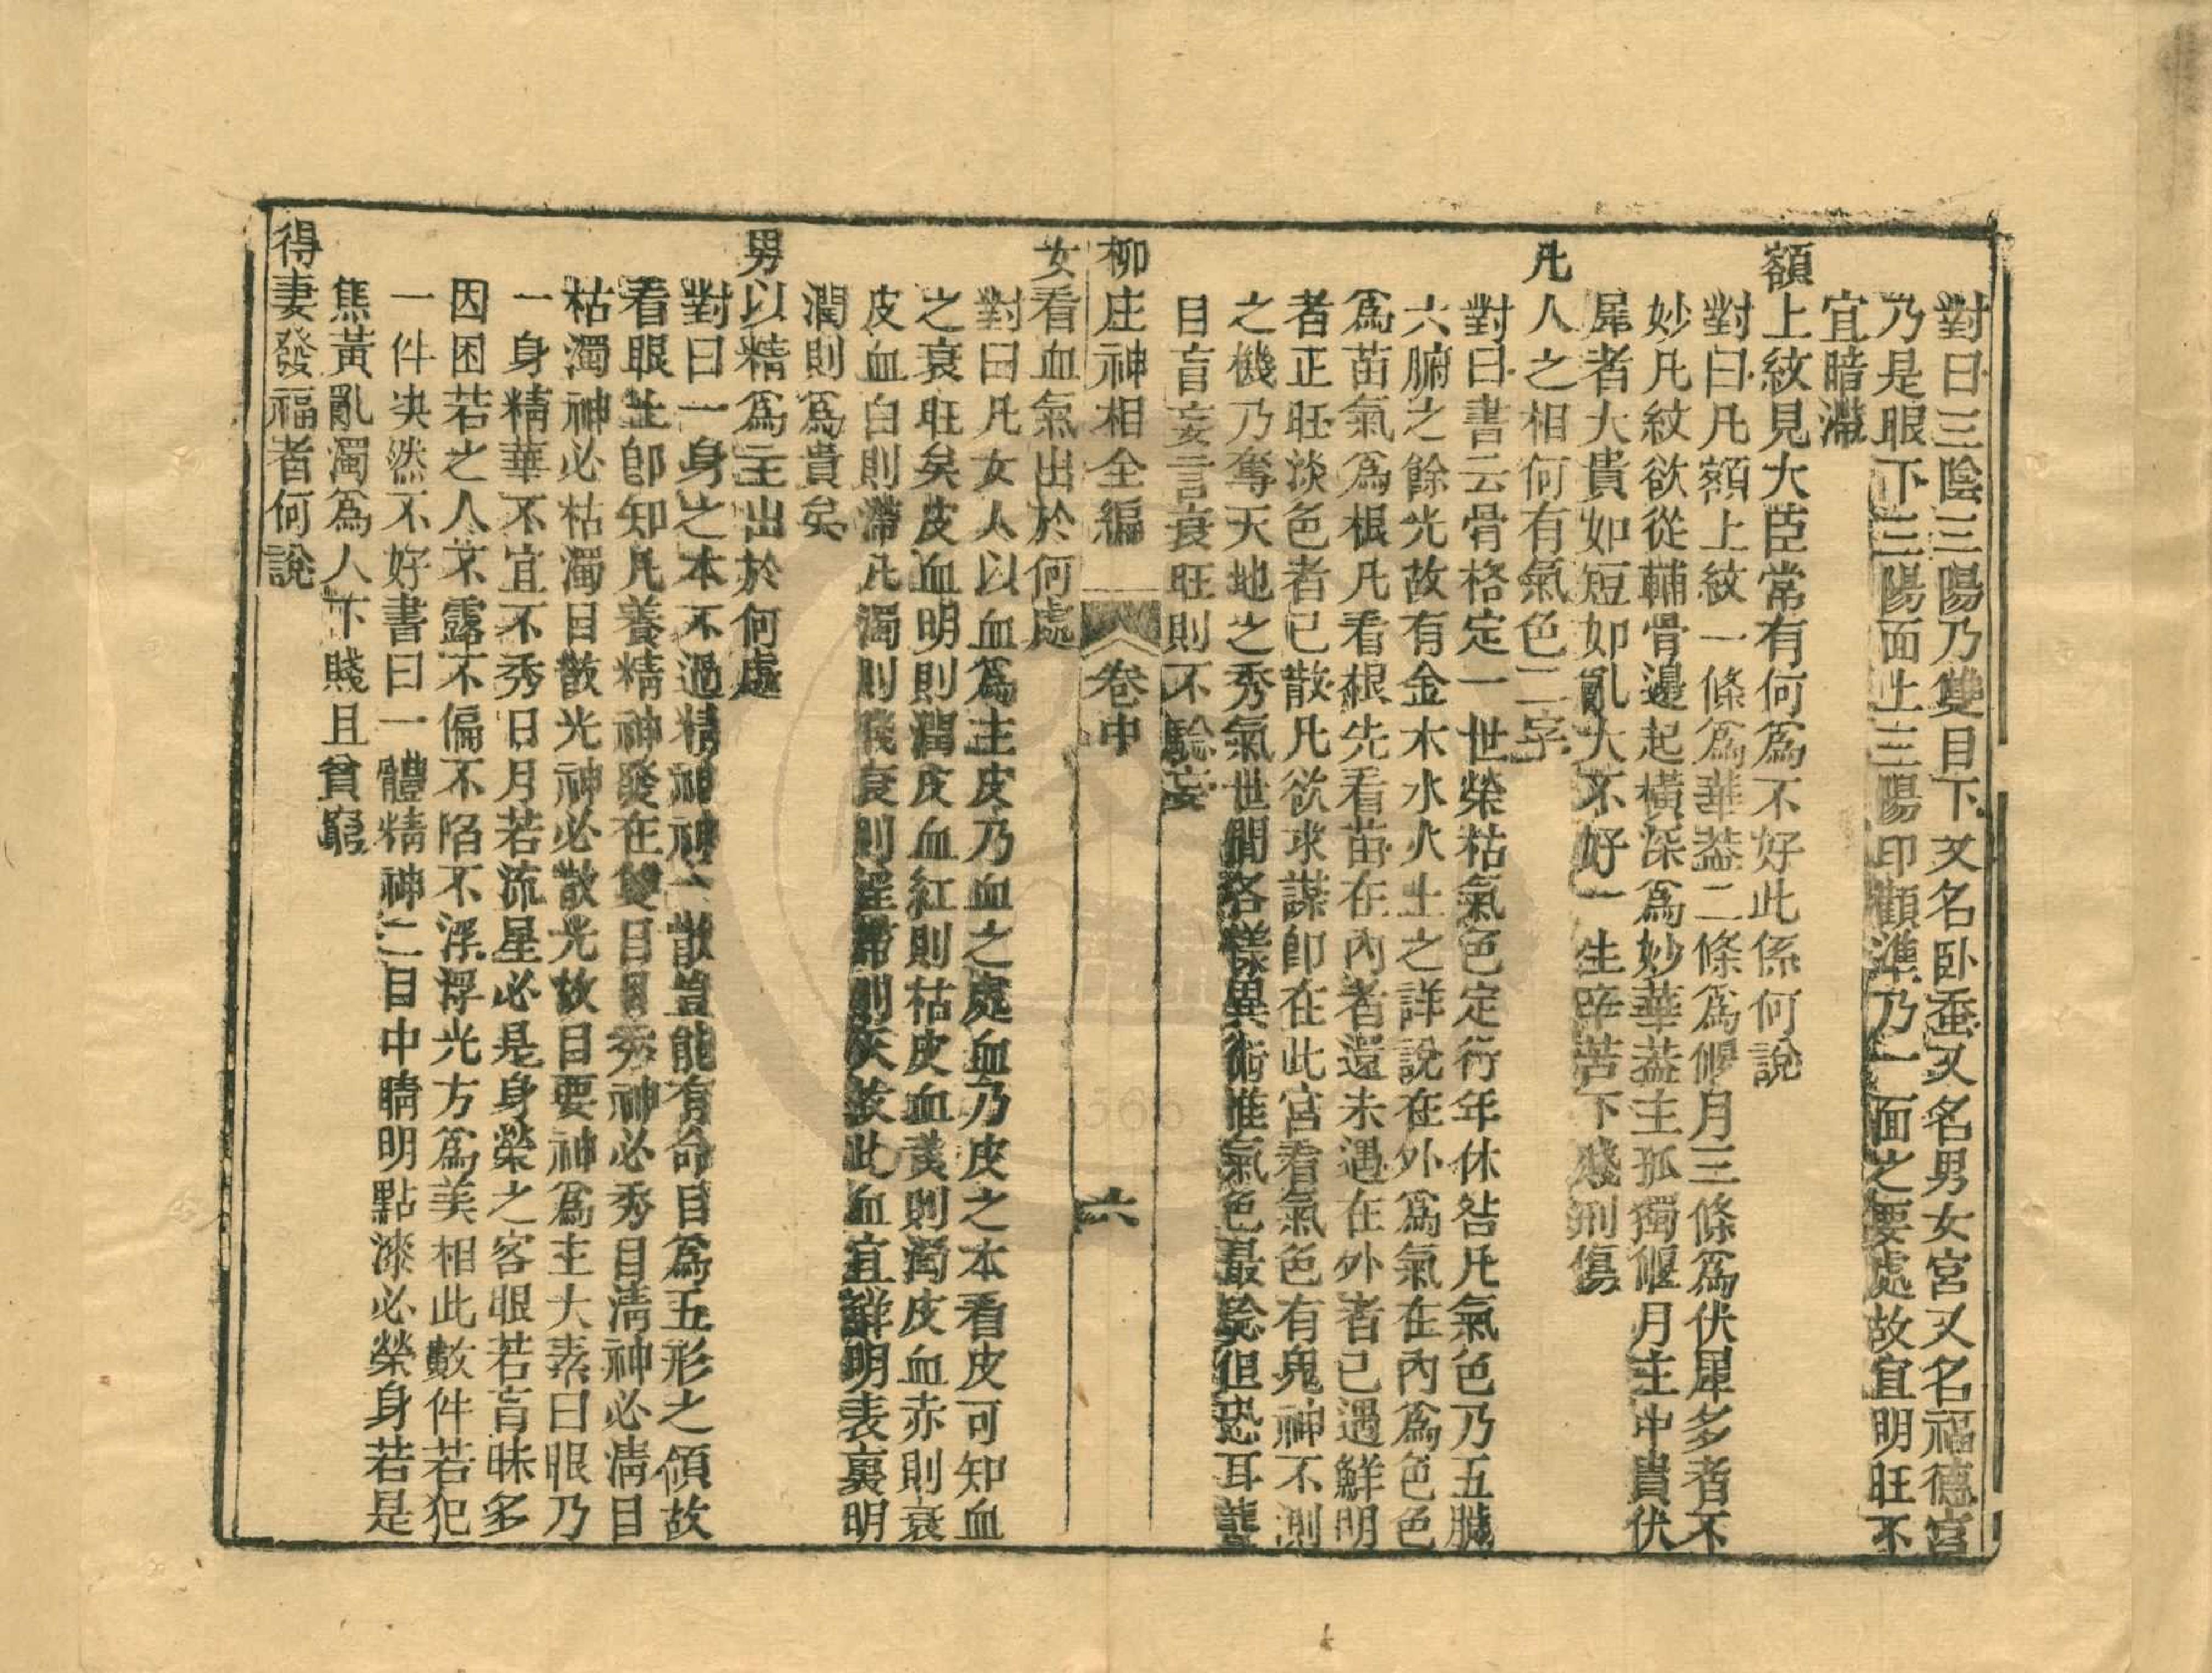 對曰三陰三陽乃雙目下又名卧蚕又名男女宮又名福德宮
乃是眼下三陽面上三陽印顴準乃一面之要處故宜明旺不
宜暗滯
額上紋見大臣常有何爲不好此係何說
對曰凡額上紋一條爲華葢二條爲偃月三條爲伏犀多者不
妙凡紋欲從輔骨邊起橫深爲妙華葢主孤獨偃月主中貴伏
犀者大貴如短如亂大不好一生辛苦下賤刑傷
凡人之相何有氣色二字
對曰書云骨格定一世榮枯氣色定行年休咎凡氣色乃五臟
六腑之餘光故有金木水火土之詳說在外爲氣在內爲色色
爲苗氣爲根凡看根先看苗在內者還未遇在外者已過鮮明
者正旺淡色者已散凡欲求謀卽在此宮看氣色有鬼神不測
之機乃奪天地之秀氣世間各樣異術惟氣色最騐但恐耳聾
目盲妄言衰旺則不騐妄
柳庄神相全編 卷中 六
女看血氣出於何處
對曰凡女人以血爲主皮乃血之處血乃皮之本看皮可知血
之衰旺矣皮血明則潤皮血紅則枯皮血黃則濁皮血赤則衰
皮血白則滯凡濁則賤衰則滯則夭故此血宜鮮明表裏明
潤則爲貴矣
男以精爲主出於何處
對曰一身之本不過精神神一散豈能有命目爲五形之領故
看眼上卽知凡養精神發在雙目目秀神必秀目清神必清目
枯濁神必枯濁目散光神必散光故目要神爲主大素曰眼乃
一身精華不宜不秀日月若流星必是身榮之客眼若盲昧多
因困若之人不露不偏不陷不深浮光方爲美相此數件若犯
一件决然不好書曰一體精神二目中睛明點漆必榮身若是
焦黃亂濁爲人下賤且貧窮
得妻發福者何說